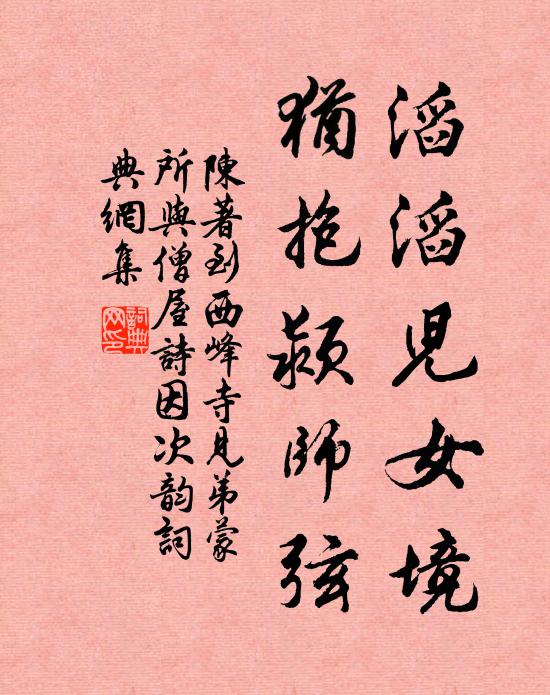 滔滔兒女境
猶抱穎師弦
陳著到西峰寺見弟蒙
所與僧屋詩因次韵詞
典網集
詞典
网印